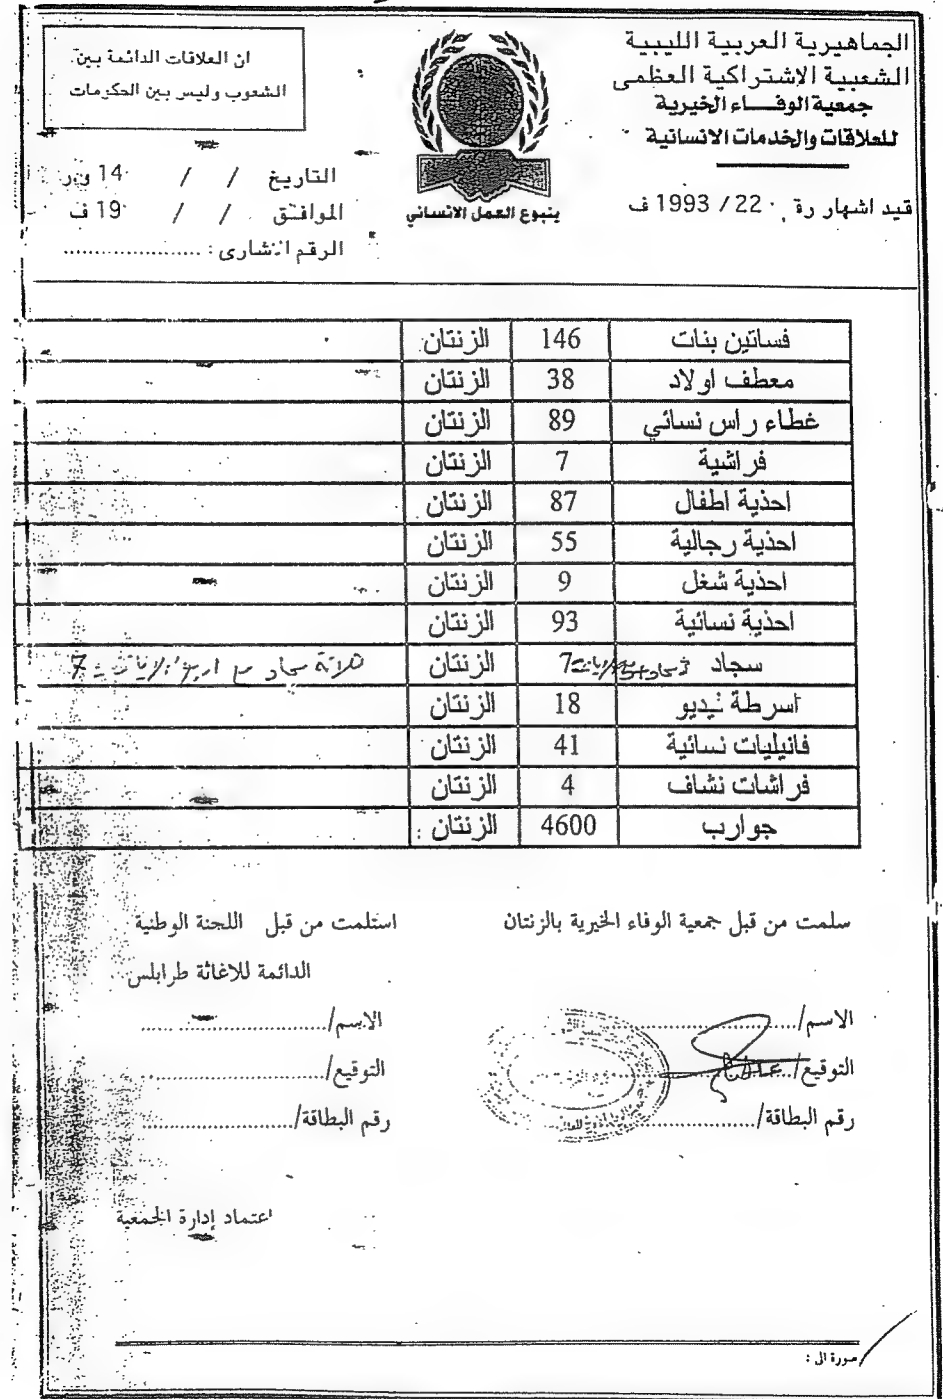 الجماهيرية العربية الليبية
الشعبية الاشتراكية العظمى
جمعية الوفــاء الخيرية
للعلاقات والخدمات الانسانية
قيد اشهار رقم 22 / 1993 ف
ينبوع العمل الانساني
ان العلاقات الدائمة بين
الشعوب وليس بين الحكومات
التاريخ / / 14 و.ر
الموافق / / 19 ف
الرقم الاشارى : ......................
فساتين بنات 146 الزنتان
معطف اولاد 38 الزنتان
غطاء راس نسائي 89 الزنتان
فراشية 7 الزنتان
احذية اطفال 87 الزنتان
احذية رجالية 55 الزنتان
احذية شغل 9 الزنتان
احذية نسائية 93 الزنتان
سجاد 7 الزنتان ثلاثة سجاد 7
اسرطة فيديو 18 الزنتان
فانيليات نسائية 41 الزنتان
فراشات نشاف 4 الزنتان
جوارب 4600 الزنتان
سلمت من قبل جمعية الوفاء الخيرية بالزنتان
الاسم/..............................
التوقيع/..............................
رقم البطاقة/..............................
استلمت من قبل اللجنة الوطنية
الدائمة للاغاثة طرابلس
الاسم/..............................
التوقيع/..............................
رقم البطاقة/..............................
اعتماد إدارة الجمعية
صورة الى :